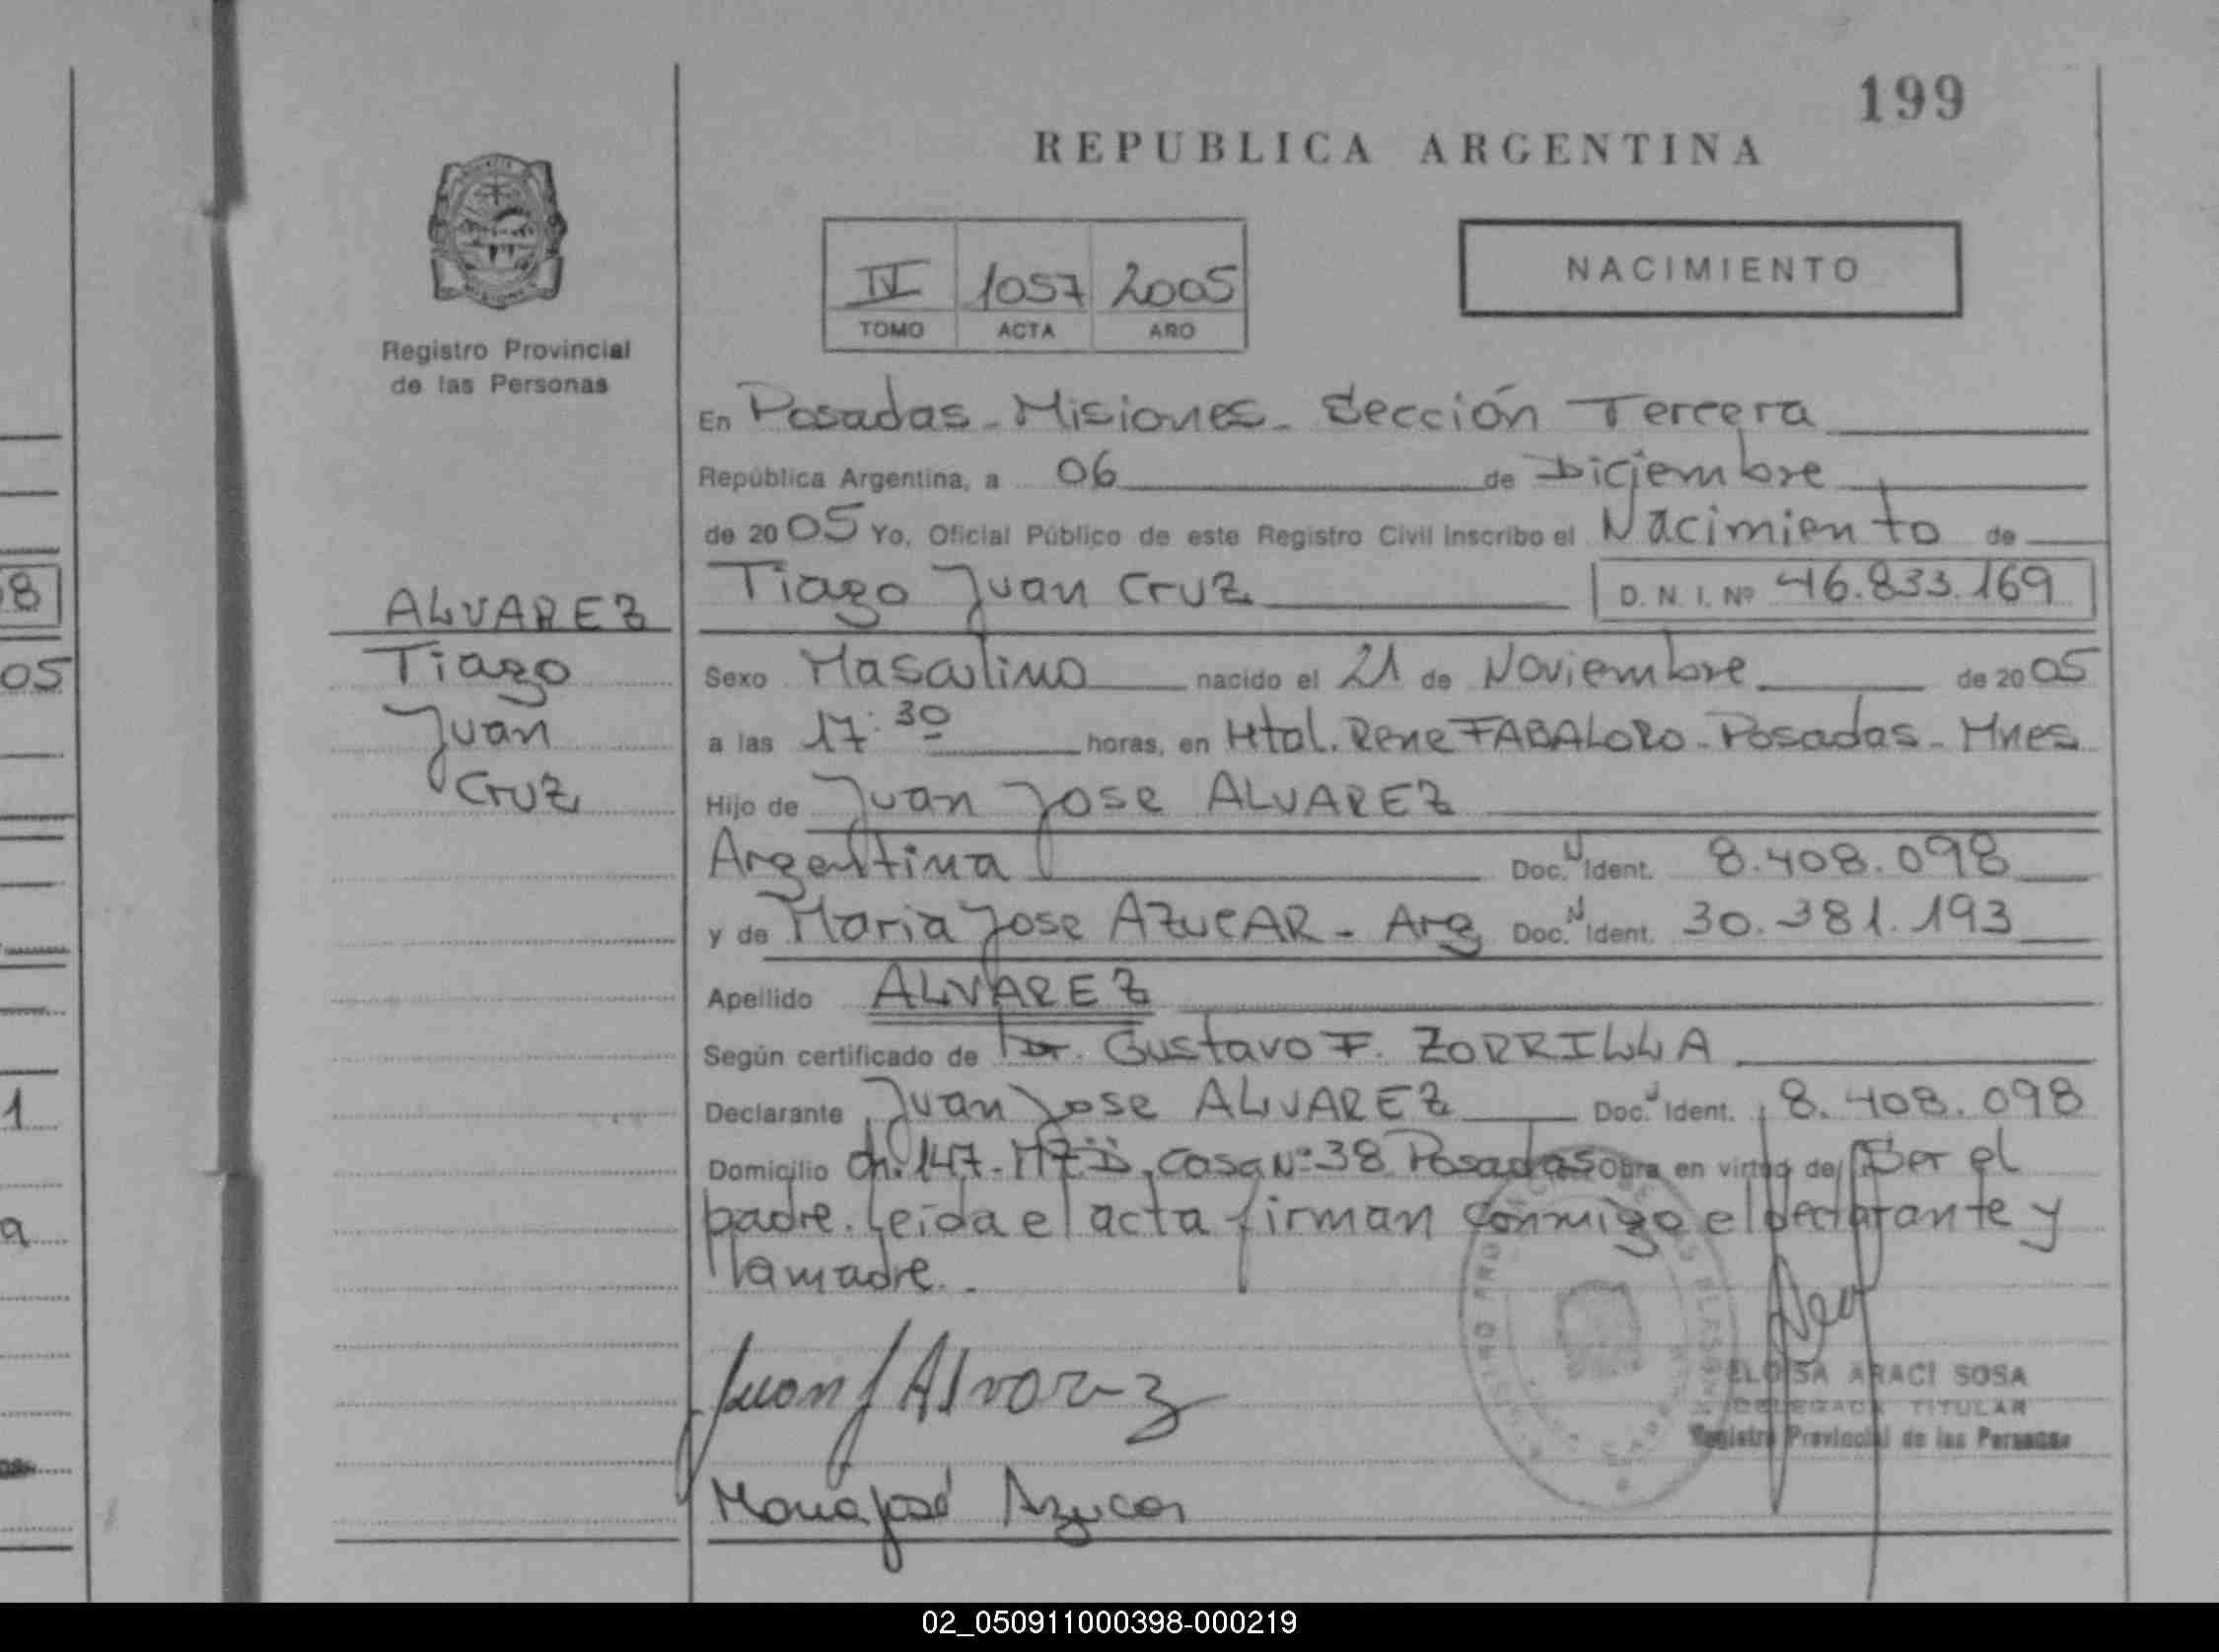 199
REPUBLICA ARGENTINA
IV 1057 2005
TOMO ACTA AÑO
NACIMIENTO
Registro Provincial
de las Personas
En Posadas - Misiones - Sección Tercera
República Argentina, a 06 de Diciembre
de 2005 Yo, Oficial Público de este Registro Civil Inscribo el Nacimiento de
Tiago Juan Cruz D.N.I. Nº 46.833.169
ALVAREZ
Tiago
Juan
Cruz
Sexo Masculino nacido el 21 de Noviembre de 2005
a las 17:30 horas, en Htal. Rene FABALORO - Posadas - Mnes
Hijo de Juan Jose ALVAREZ
Argentina Doc. N Ident. 8.408.098
y de Maria Jose AZUCAR - Arg Doc. N Ident. 30.381.193
Apellido ALVAREZ
Según certificado de Dr. Gustavo F. ZORRILLA
Declarante Juan Jose ALVAREZ Doc. Ident. 8.408.098
Domicilio Ch. 147 - Mz D, Casa Nº 38 Posadas Obra en virtud de Ser el
padre. Leida el acta firman conmigo el declarante y
la madre.-
Juan J Alvarez
ELOISA ARACI SOSA
DELEGADA TITULAR
Registro Provincial de las Personas
Maria José Azucar
8
05
1
a
02_050911000398-000219